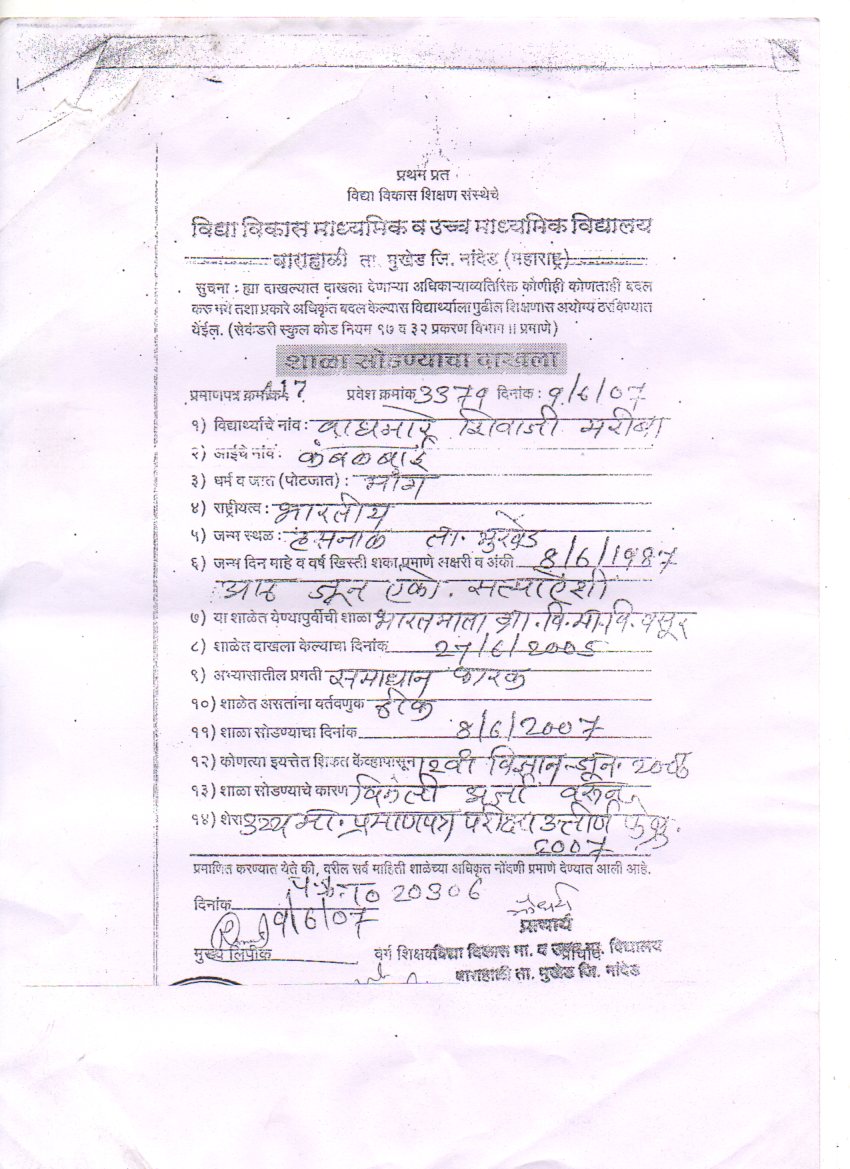 प्रथम प्रत
विद्या विकास शिक्षण संस्थेचे
विद्या विकास माध्यमिक व उच्च माध्यमिक विद्यालय
बाराहाळी ता. मुखेड जि. नांदेड (महाराष्ट्र)
सुचना : ह्या दाखल्यात दाखला देणाऱ्या अधिकाऱ्याव्यतिरिक्त कोणीही कोणताही बदल
करु नये तशा प्रकारे अधिकृत बदल केल्यास विद्यार्थ्याला पुढील शिक्षणास अयोग्य ठरविण्यात
येईल. (सेकंडरी स्कुल कोड नियम १७ व ३२ प्रकरण विभाग II प्रमाणे)
शाळा सोडण्याचा दाखला
प्रमाणपत्र क्रमांक 417 प्रवेश क्रमांक 3379 दिनांक : 9/6/07
१) विद्यार्थ्याचे नांव : वाघमारे शिवाजी मरीबा
२) आईचे नांव : कंबळबाई
३) धर्म व जात (पोटजात) : मांग
४) राष्ट्रीयत्व : भारतीय
५) जन्म स्थळ : हसनाळ ता. मुखेड
६) जन्म दिन माहे व वर्ष खिस्ती शका प्रमाणे अक्षरी व अंकी 8/6/1987
आठ जून एको. सत्याऐंशी
७) या शाळेत येण्यापुर्वीची शाळा भारतमाता ज्ञा.वि.मा.वि.वसूर
८) शाळेत दाखला केल्याचा दिनांक 27/6/2005
९) अभ्यासातील प्रगती समाधान कारक
१०) शाळेत असतांना वर्तवणुक ठीक
११) शाळा सोडण्याचा दिनांक 8/6/2007
१२) कोणत्या इयत्तेत शिकत केंव्हापासून 12वी विज्ञान जून. 2006
१३) शाळा सोडण्याचे कारण विनंती अर्जा वरून.
१४) शेरा उच्च मा. प्रमाणपत्र परीक्षा उत्तीर्ण फेब्रु.
2007
प्रमाणित करण्यात येते की, वरील सर्व माहिती शाळेच्या अधिकृत नोंदणी प्रमाणे देण्यात आली आहे.
20306
दिनांक 9/6/07
प्राचार्य
मुख्य लिपीक वर्ग शिक्षक विद्या विकास मा. व उच्च मा. विद्यालय
बाराहाळी ता. मुखेड जि. नांदेड